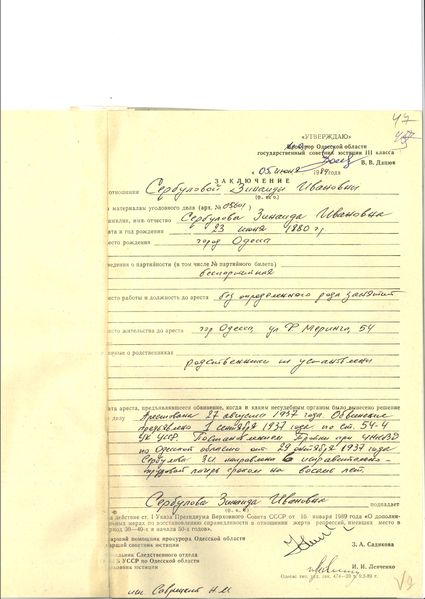 47
«УТВЕРЖДАЮ»
Прокурор Одесской области
государственный советник юстиции III класса
В. В. Дацюк
« 05 » июня 1989 года
ЗАКЛЮЧЕНИЕ
отношении Сербуловой Зинаиды Ивановны
(ф. и. о.)
материалам уголовного дела (арх. №
милия, имя, отчество Сербулова Зинаида Ивановна
ата и год рождения 23 июня 1880 г.
есто рождения город Одесса
ведения о партийности (в том числе № партийного билета)
беспартийная
есто работы и должность до ареста без определенного рода занятий
есто жительства до ареста гор Одесса, ул Ф Меринга, 54
нные о родственниках
родственники не установлены
ата ареста, предъявлявшееся обвинение, когда и каким несудебным органом было вынесено решение
делу Арестована 27 августа 1937 года. Обвинение
предъявлено 1 сентября 1937 года по ст. 54-4
УК УССР. Постановлением Тройки при УНКВД
по Одесской области от 29 октября 1937 года
Сербулова ЗИ направлена в исправительно-
трудовой лагерь сроком на восемь лет.
Сербулова Зинаида Ивановна подпадает
(ф. и. о.)
д действие ст. 1 Указа Президиума Верховного Совета СССР от 16 января 1989 года «О дополни-
льных мерах по восстановлению справедливости в отношении жертв репрессий, имевших место в
риод 30—40-х и начала 50-х годов».
арший помощник прокурора Одесской области
арший советник юстиции
З. А. Садикова
чальник Следственного отдела
Б УССР по Одесской области
овник юстиции
И. И. Ленченко
исп Саврицкая Н.М